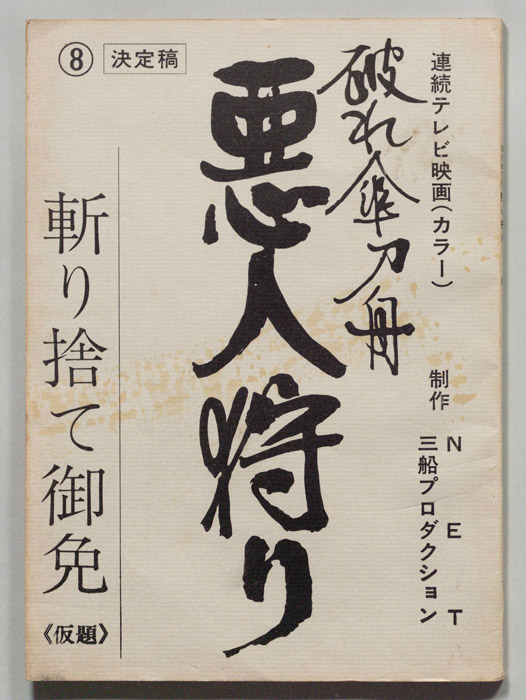 連続テレビ映画(カラー)
制作 NET
三船プロダクション
破れ傘刀舟
悪人狩り
⑧ 決定稿
斬り捨て御免《仮題》